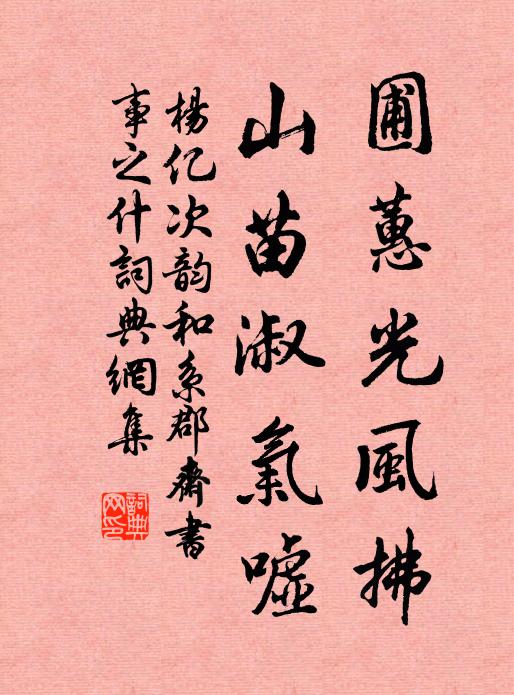 圃蕙光風拂
山苗淑氣噓
楊亿次韵和系郡齋書
事之什詞典網集
詞典網印